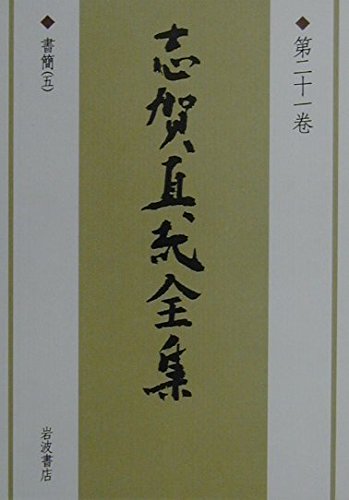 ◆第二十一巻
志賀直哉全集
◆書簡(五)
岩波書店